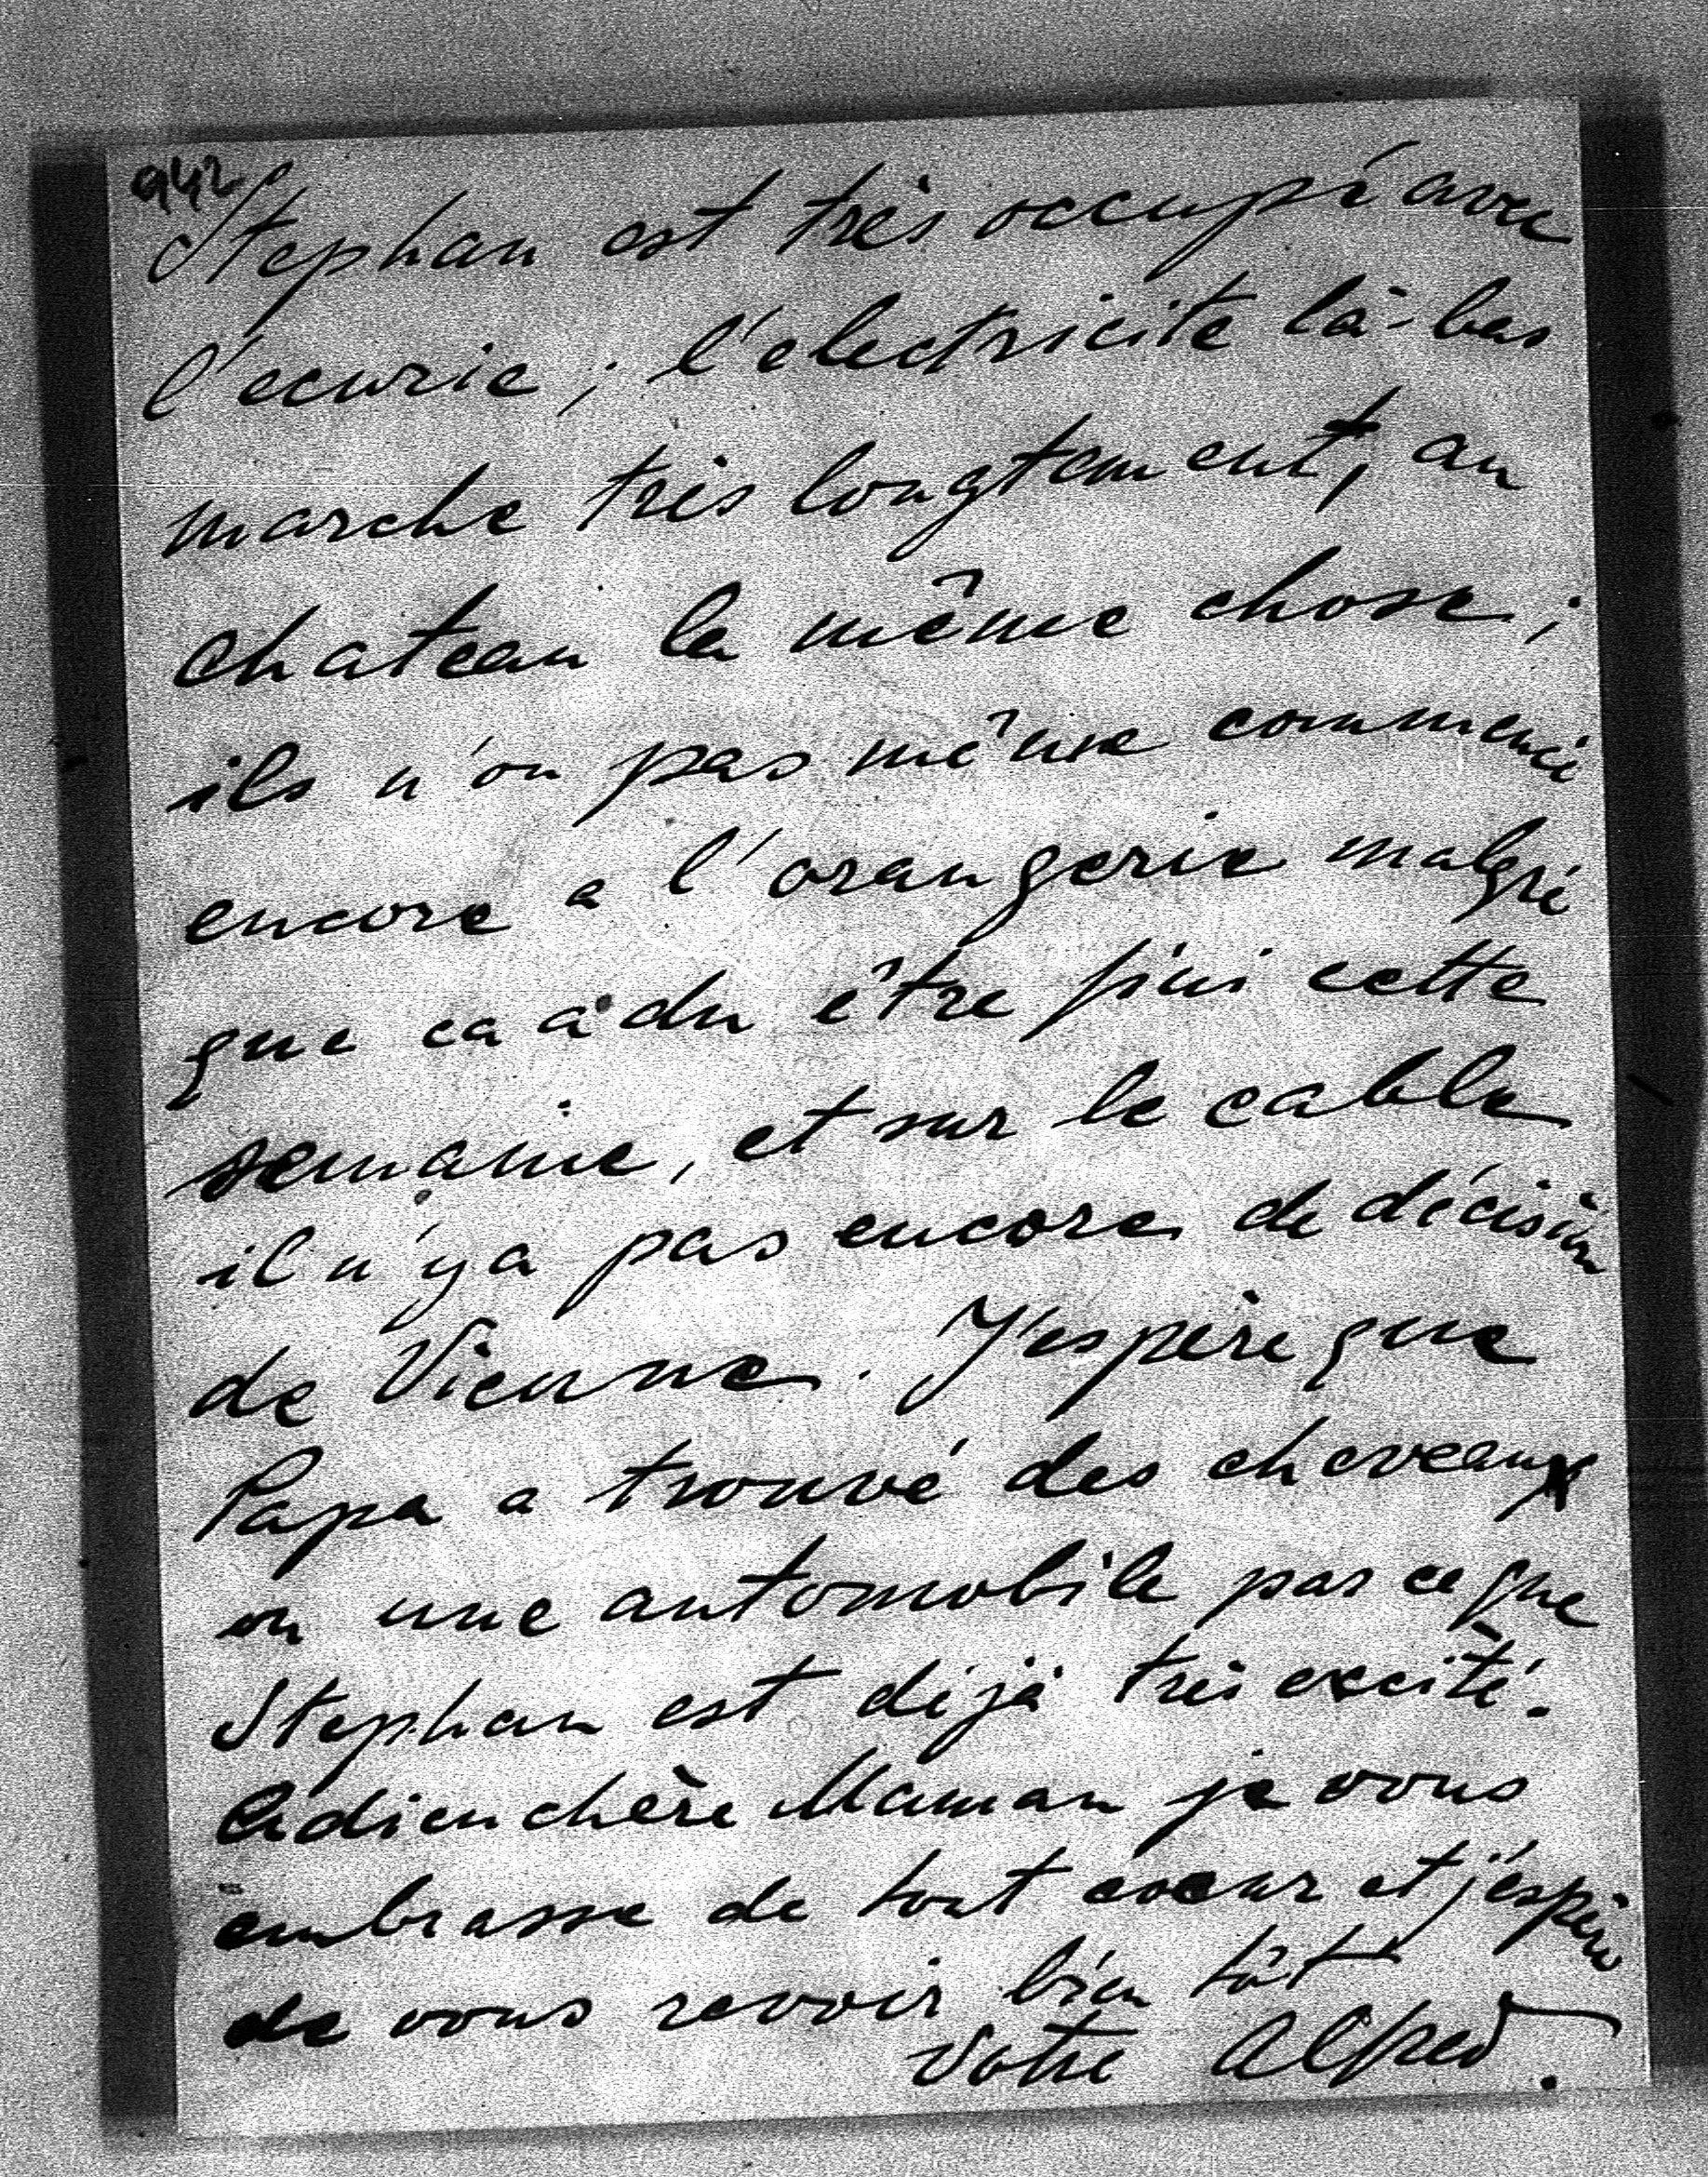 942
Stephan est très occupé avec
l'ecurie; l'electricité là-bas
marche très longtement, au
chateau la même chose;
ils n'on pas même commencé
encore a l'orangerie malgré
que ca a du être fini cette
semaine, et sur le cable
il n'y a pas encore de décision
de Vienne. J'espère que
Papa a trouvé des cheveaux
ou une automobile parceque
Stephan est déjà très excité.
Adieu chère Maman je vous
embrasse de tout coeur et j'éspère
de vous revoir bien tôt
Votre Alfred.